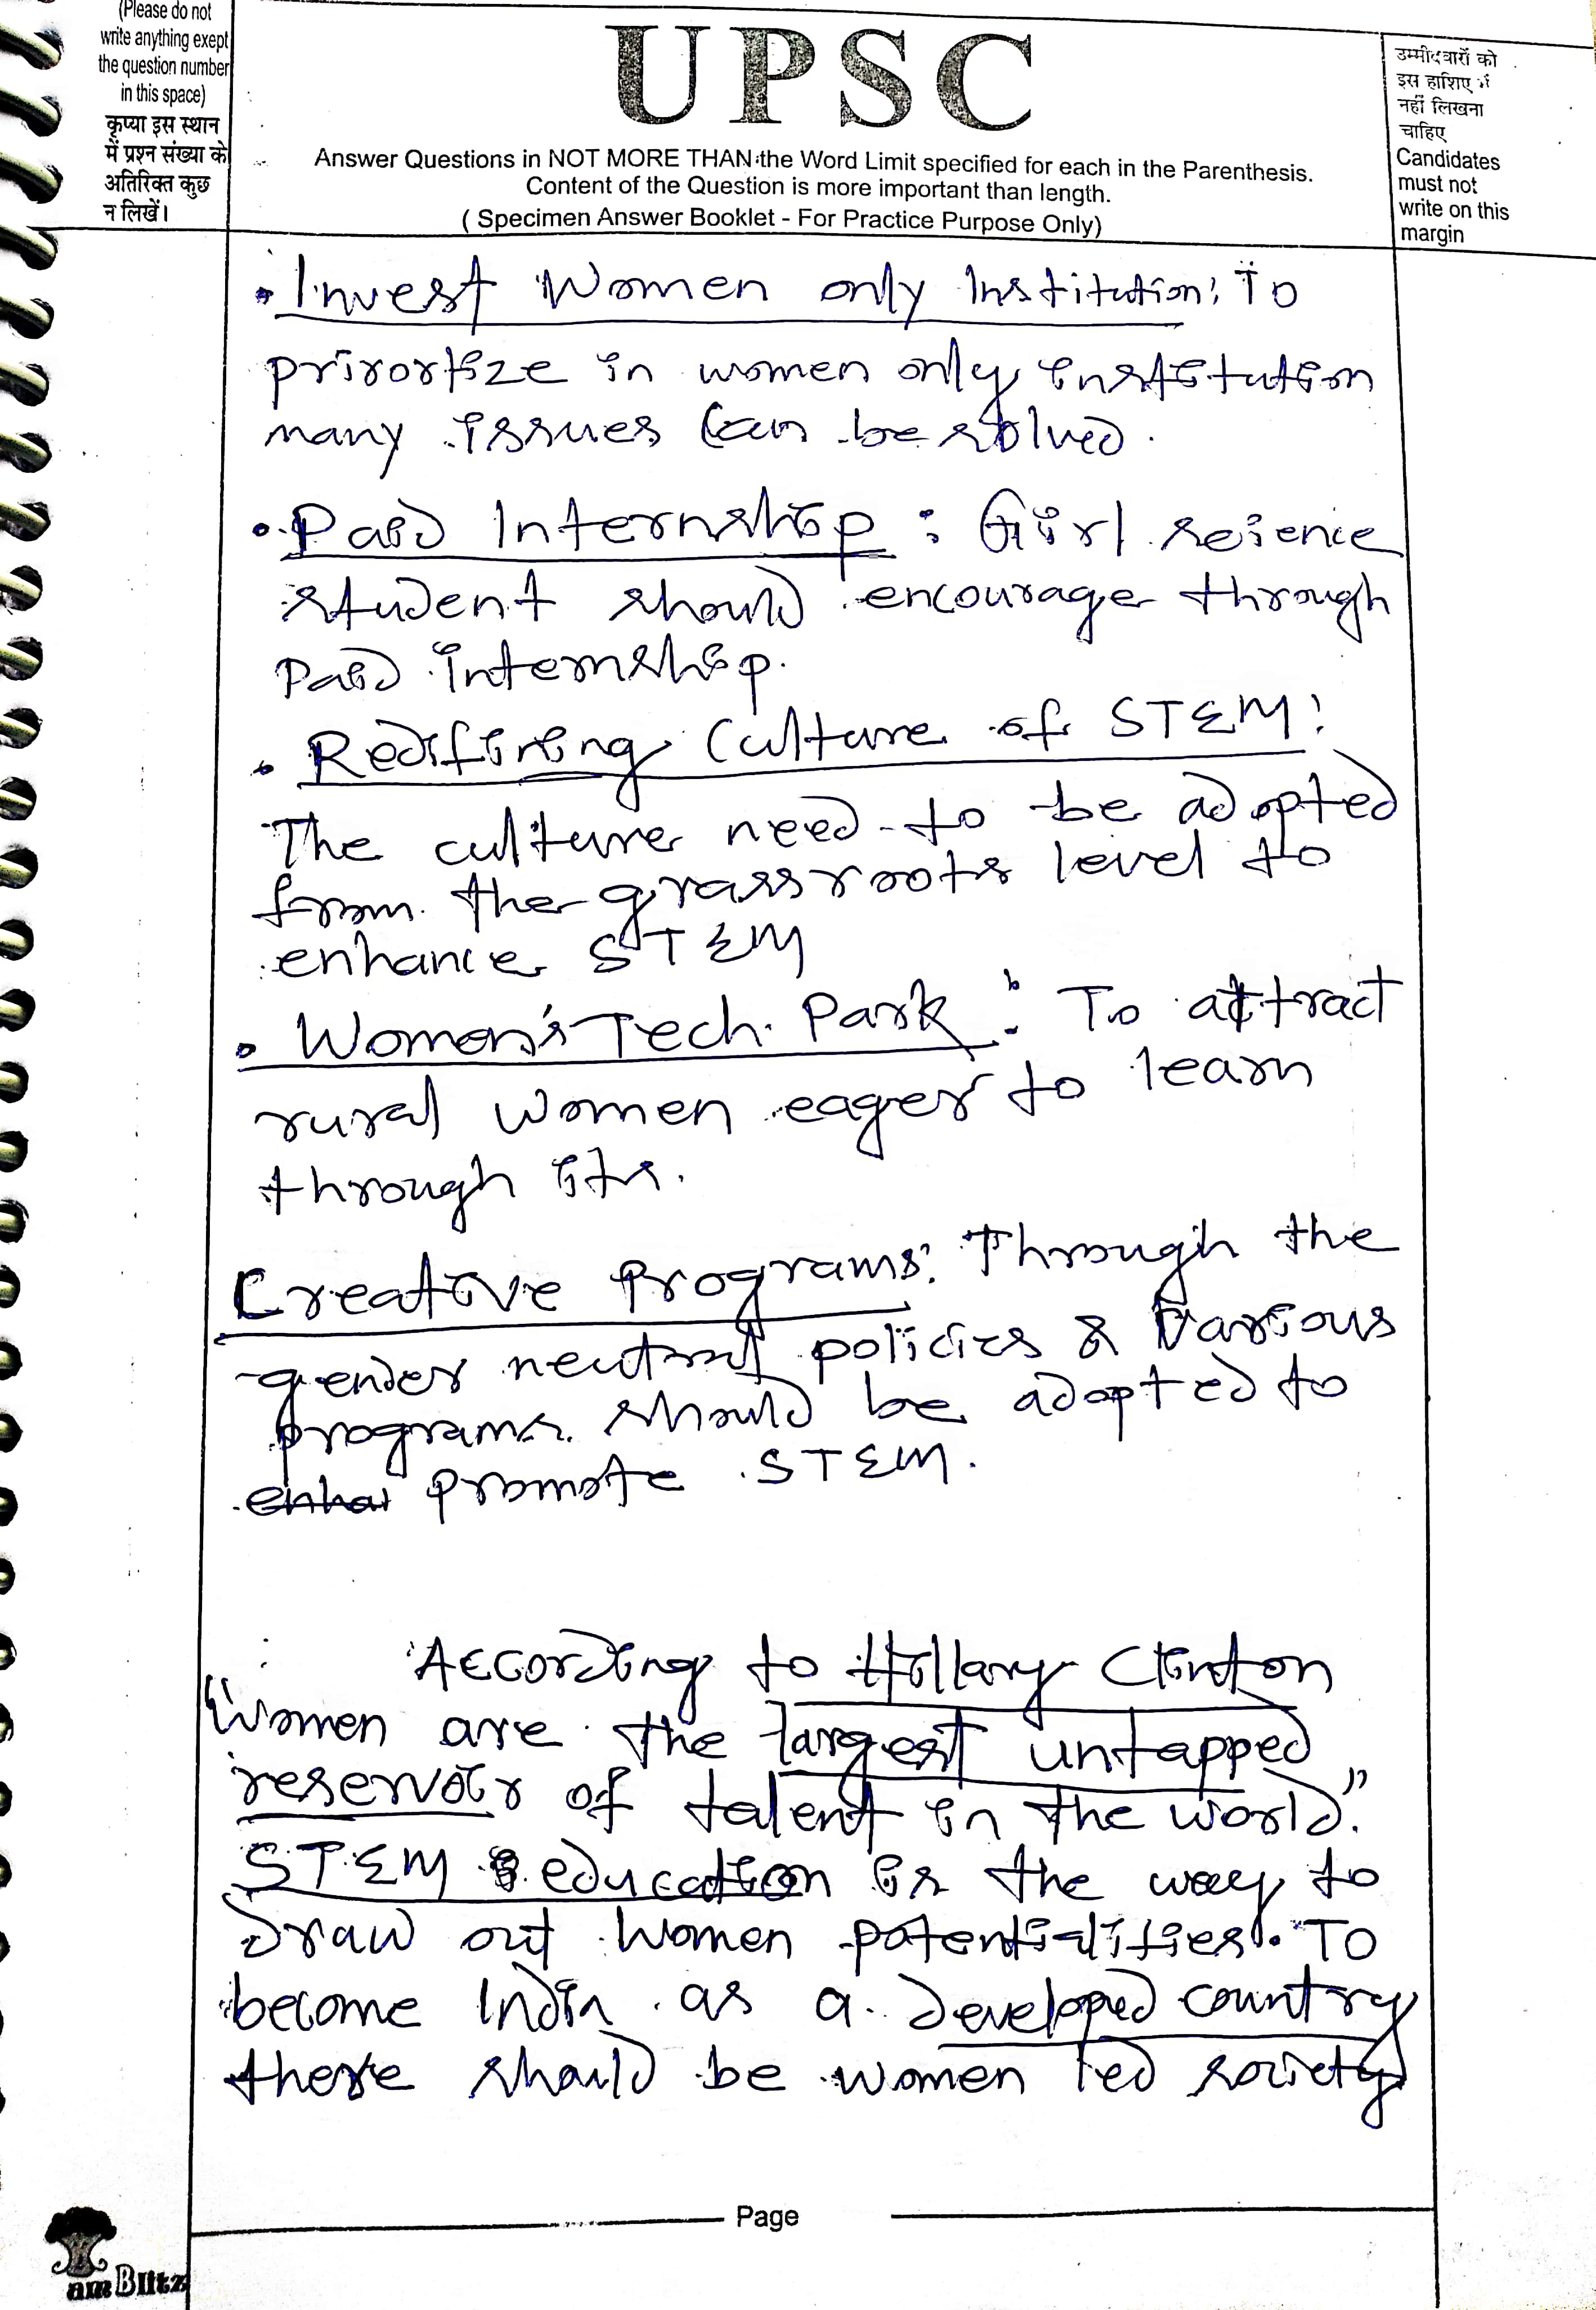 (Please do not
write anything exept
the question number
in this space)
कृप्या इस स्थान
में प्रश्न संख्या के
अतिरिक्त कुछ
न लिखें।
UPSC
Answer Questions in NOT MORE THAN the Word Limit specified for each in the Parenthesis.
Content of the Question is more important than length.
( Specimen Answer Booklet - For Practice Purpose Only)
उम्मीदवारों को
इस हाशिए में
नहीं लिखना
चाहिए
Candidates
must not
write on this
margin
• Invest Women only Institution: To
prirortize in women only institution
many issues can be solved.
• Paid Internship : Girl science
student should encourage through
Paid internship.
• Redifining Culture of STEM:
The culture need to be adopted
from the grassroots level to
enhance STEM
• Women's Tech Park : To attract
rural women eager to learn
through its.
Creative Programs: Through the
gender neutral policies & Various
programs should be adopted to
enha promote STEM.
According to Hillary Clinton
"Women are the largest untapped
reservoir of talent in the world."
STEM education is the way to
draw out Women potentialities. To
become India as a developed country
there should be women led society
Page
am Blitz